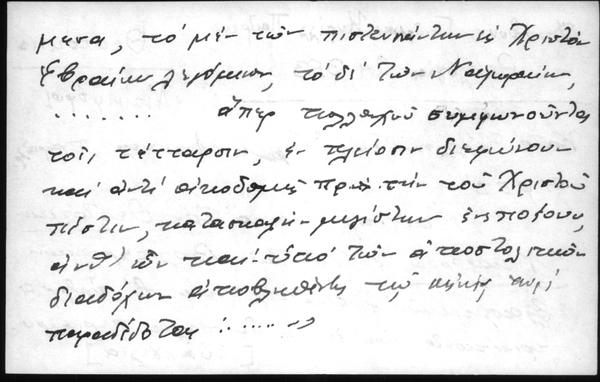 ματα, τὸ μὲν τῶν πιστευσάντων εἰς Χριστὸν
Ἑβραίων λεγόμενον, τὸ δὲ τῶν Ναζωραίων,
....... ἅπερ πολλαχοῦ συμφωνοῦντα
τοῖς τέτταρσιν, ἐν πλείοσιν διαφωνοῦν
καὶ ἀντὶ οἰκοδομῆς πρὸς τὴν τοῦ Χριστοῦ
πίστιν, κατασκαφὴν μεγίστην ἐνεποίουν,
ἀνθ' ὧν καὶ ὑπὸ τῶν ἀποστολικῶν
διαδόχων ἀποβληθέντα τῷ πυρὶ
παραδίδοται :.....